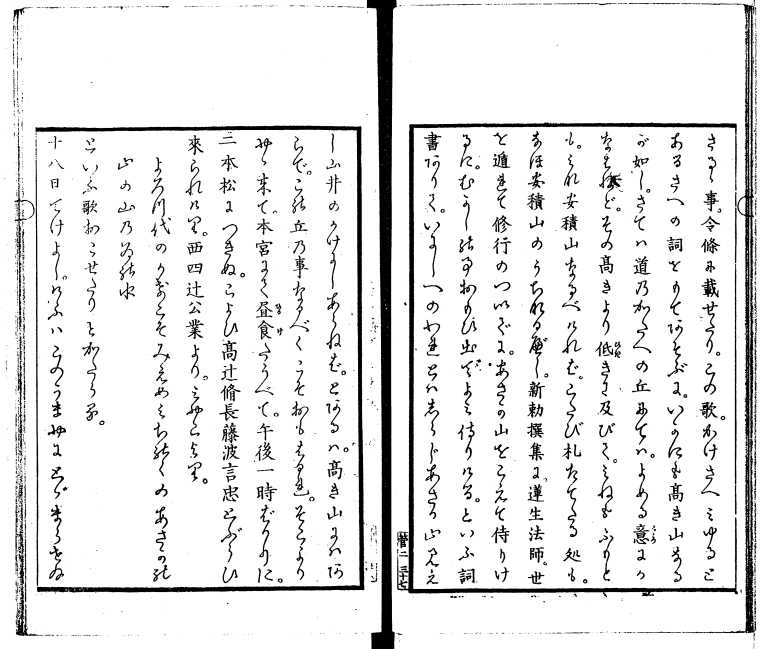 さるゝ事。令條に載せたり。この歌。かけさへみゆると
あるさへの詞をもてあそぶに。いかにも高き山なる
が如し。さては道のかたへの丘にては。よめる意にか
なはねど。その高きより低きに及びて。みねもふもと
も。みな安積山なるべければ。こたび札たてたる処も。
なほ安積山のうちなるべし。新勅撰集に。蓮生法師。世
を遁れて修行のついでに。あさかの山をこえて侍りけ
るに。むかしの事おもひ出でよみ侍りける。といふ詞
書ありて。いにしへのわれとはしらじあさか山見え
し山井のかげにしあらねば。とあるは。高き山にはあ
らで。この丘の事なるべくこそおもはるれ。そこより
にゝ来て。本宮にて昼食たうべて。午後一時ばかりに。
二本松につきぬ。こよひ高辻脩長藤波言忠とぶらひ
來られけり。西四辻公業より。
よろづ代のかずこそみえめみちのくのあさかの
山の山の
といふ歌おこせたりとかたらる。
十八日てけよし。けふはこのうまやにとゞまらせ